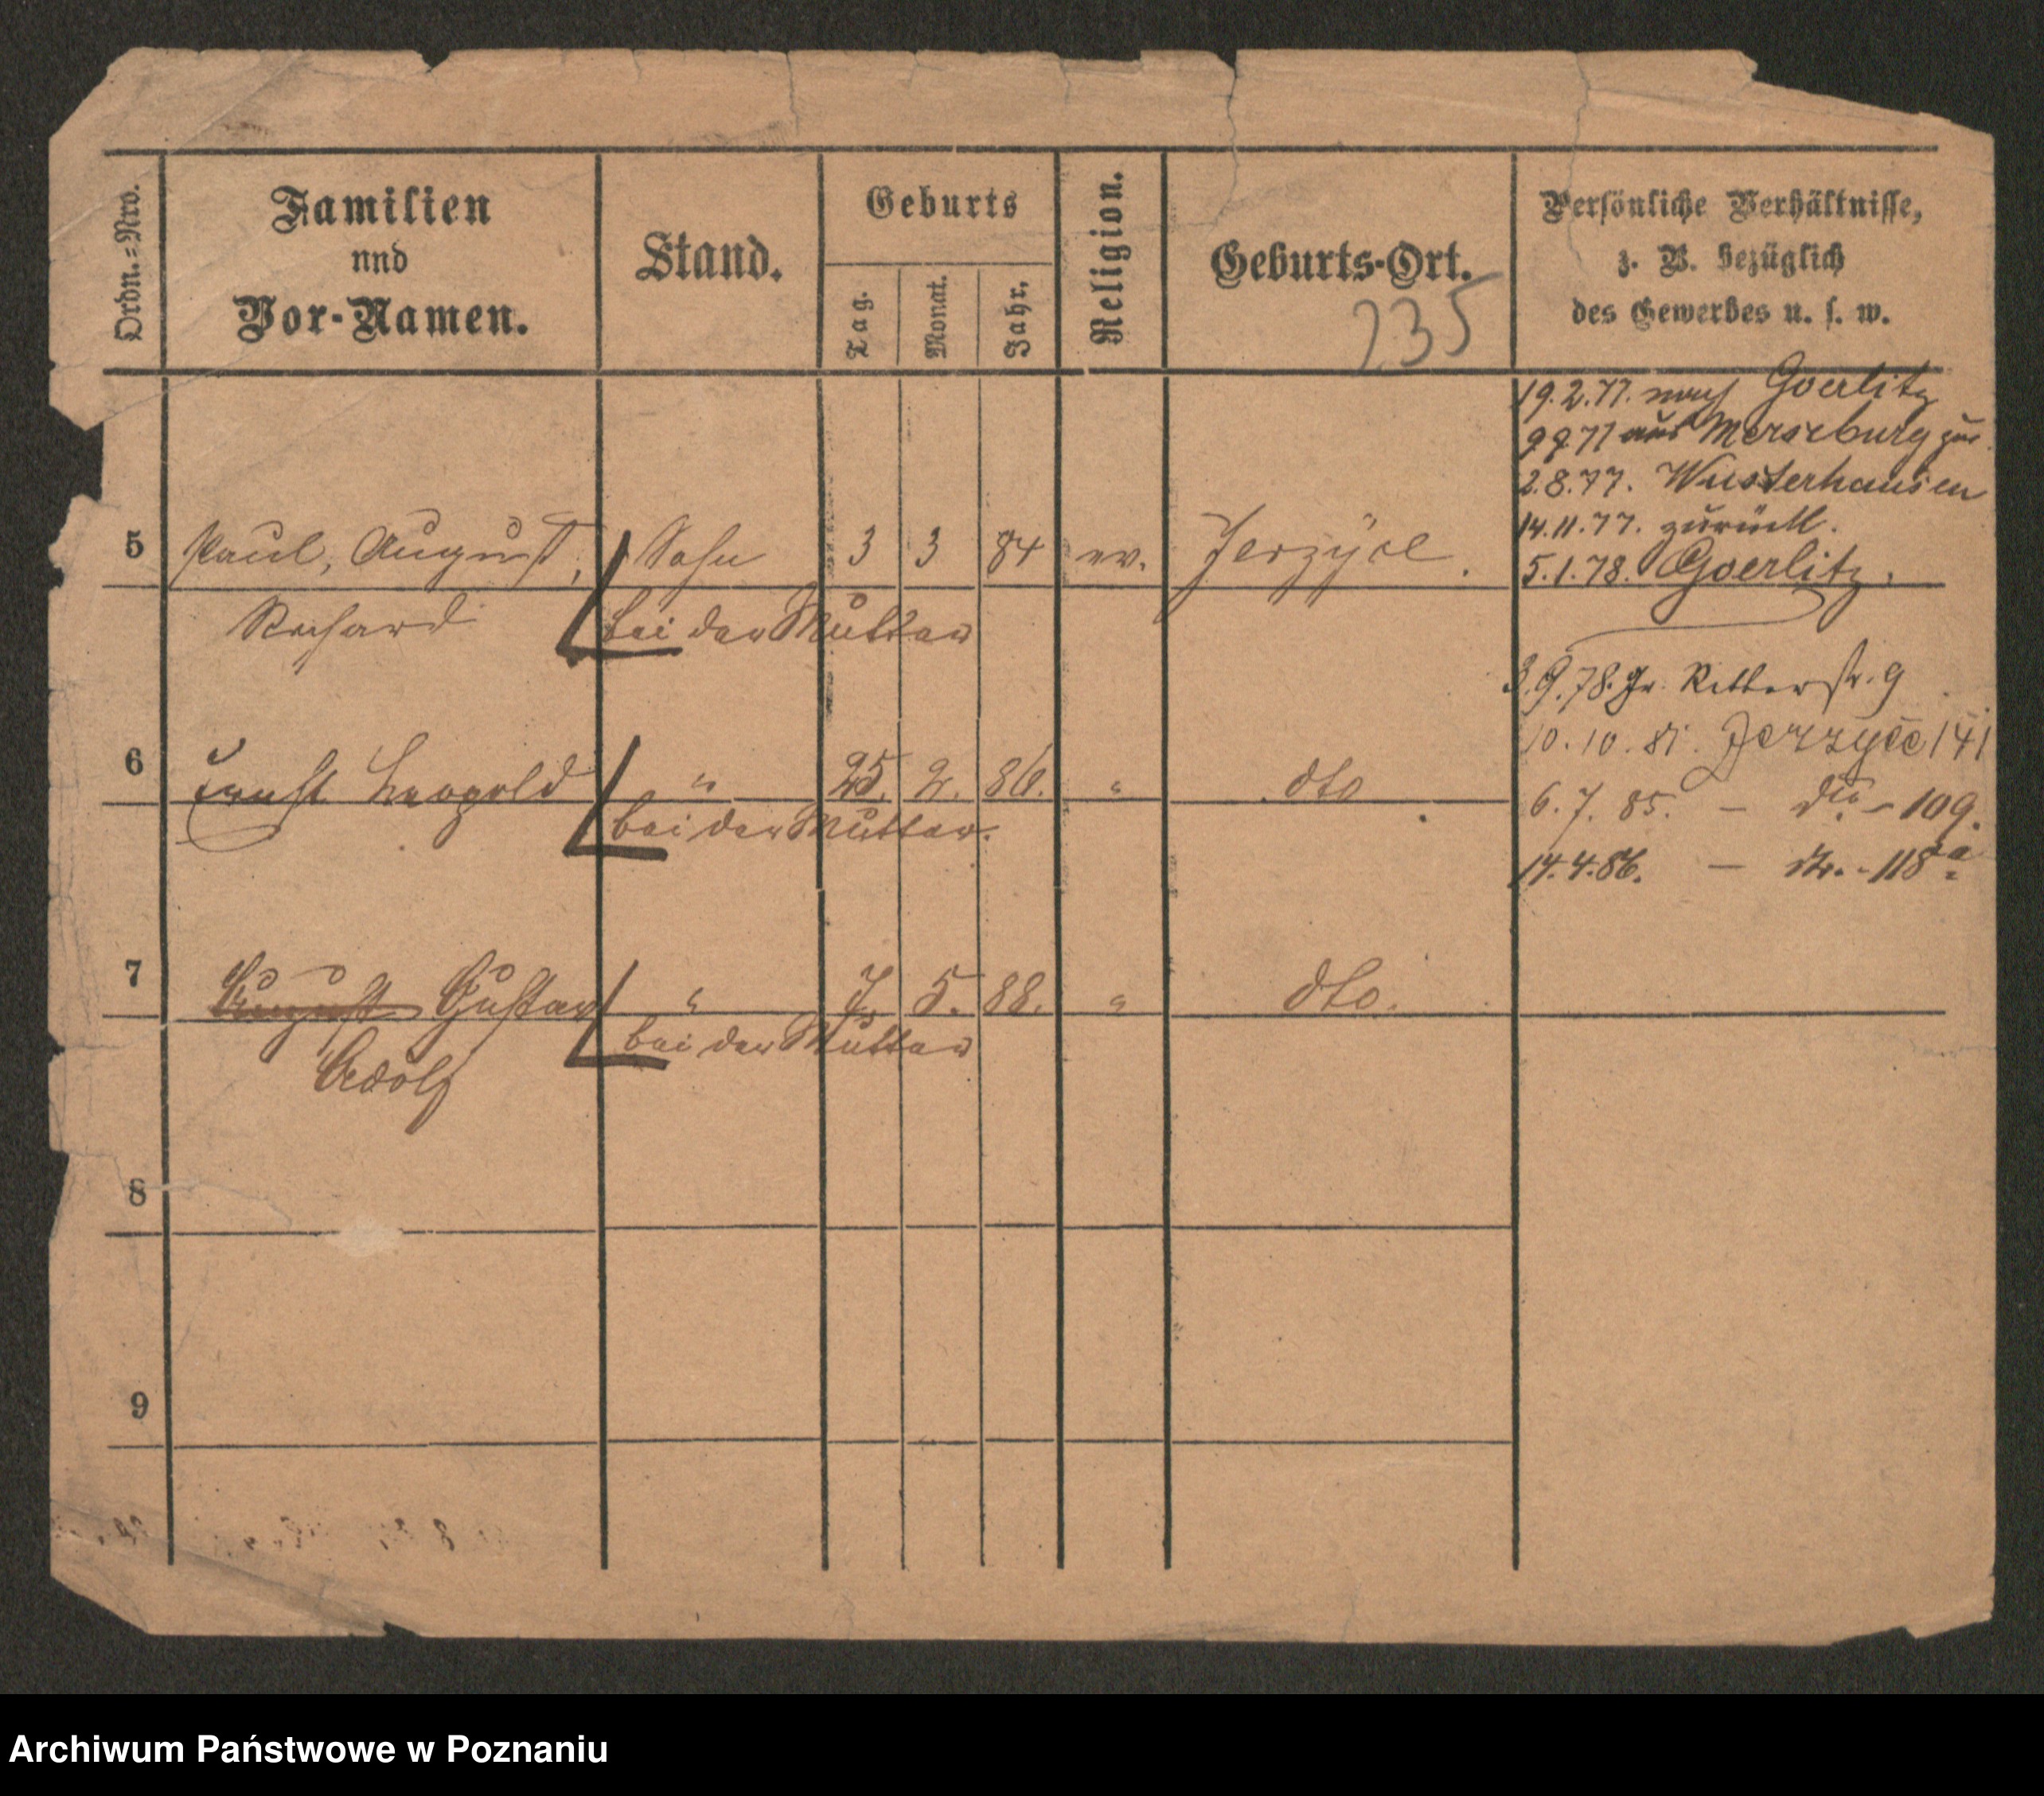 Ordn.=Nro.
Familien
und
Vor-Namen.
Stand.
Geburts
Tag.
Monat.
Jahr.
Religion.
Geburts-Ort.
235
Persönliche Verhältnisse,
z. B. bezüglich
des Gewerbes u. s. w.
19.2.77. nach Goerlitz
9 9 77 aus Merseburg zur.
2.8.77. Wusterhausen
14.11.77. zurück.
5.1.78. Goerlitz.
3.9.78. Gr. Ritterstr. 9
10.10.81. Jerzyce 141
6.7.85. — dto - 109.
14.4.86. — dto. - 118a
5 Paul, August, Sohn 3 3 84 ev. Jerzyce.
Richard bei der Mutter
6 Ernst Leopold " 25. 2. 86. " dto
bei der Mutter.
7 August Gustav " 7. 5. 88. " dto.
bei der Mutter
Adolf
8
9
Archiwum Państwowe w Poznaniu